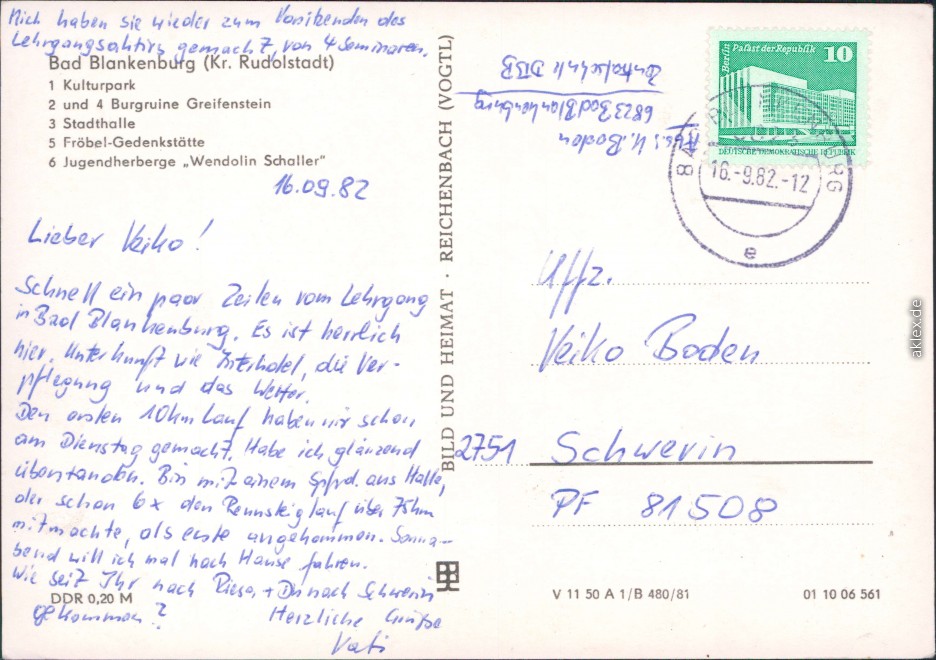 Mich haben sie wieder zum Vorsitzenden des
Lehrgangsaktivs gemacht, von 4 Seminaren.
Bad Blankenburg (Kr. Rudolstadt)
1 Kulturpark
2 und 4 Burgruine Greifenstein
3 Stadthalle
5 Fröbel-Gedenkstätte
6 Jugendherberge „Wendolin Schaller"
16.09.82
Lieber Veiko!
Schnell ein paar Zeilen vom Lehrgang
in Bad Blankenburg. Es ist herrlich
hier. Unterkunft wie Interhotel, die Ver-
pflegung und das Wetter.
Den ersten 10km Lauf haben wir schon
am Dienstag gemacht. Habe ich glänzend
überstanden. Bin mit einem Sprfrd. aus Halle,
der schon 6x den Rennsteiglauf über 75km
mitmachte, als erste angekommen. Sonna-
bend will ich mal nach Hause fahren.
Wie seit Ihr nach Riesa, + Du nach Schwerin
gekommen?
Herzliche Grüße
Vati
DDR 0,20 M
BILD UND HEIMAT · REICHENBACH (VOGTL)
Abs. H. Boden
6823 Bad Blankenburg
Zentralschule DTSB
Berlin Palast der Republik 10
DEUTSCHE DEMOKRATISCHE REPUBLIK
BAD BLANKENBURG
6823
16.-9.82.-12
e
Uffz.
Veiko Boden
2751 Schwerin
PF 81508
V 11 50 A 1/B 480/81
01 10 06 561
aklex.de